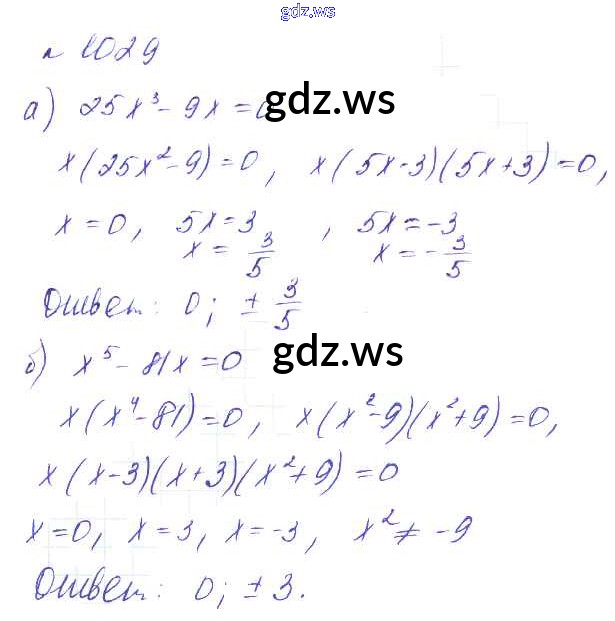 gdz.ws
№ 1029
а) 25x³ - 9x = 0 gdz.ws
x(25x² - 9) = 0, x(5x - 3)(5x + 3) = 0,
x = 0, 5x = 3, 5x = -3
x = 3/5 x = -3/5
Ответ: 0; ± 3/5
б) x⁵ - 81x = 0 gdz.ws
x(x⁴ - 81) = 0, x(x² - 9)(x² + 9) = 0,
x(x - 3)(x + 3)(x² + 9) = 0
x = 0, x = 3, x = -3, x² ≠ -9
Ответ: 0; ± 3.